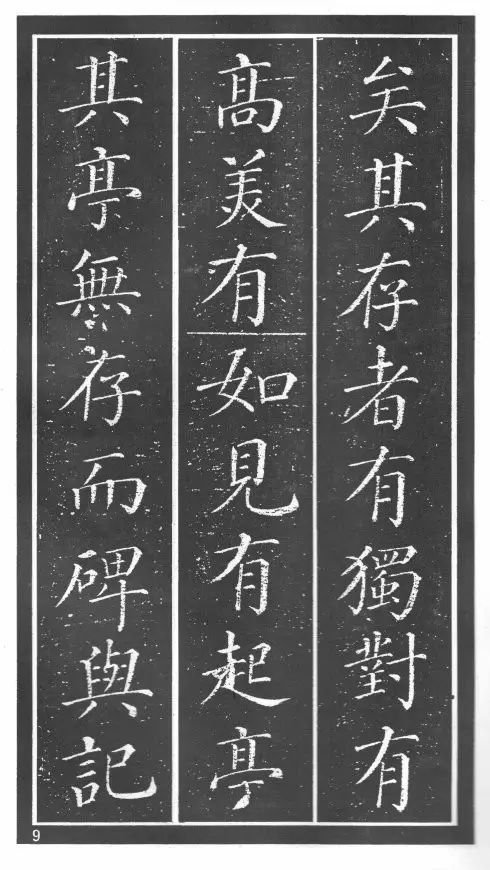 矣其存者有獨對有
高美有如見有起亭
其亭無存而碑與記
9